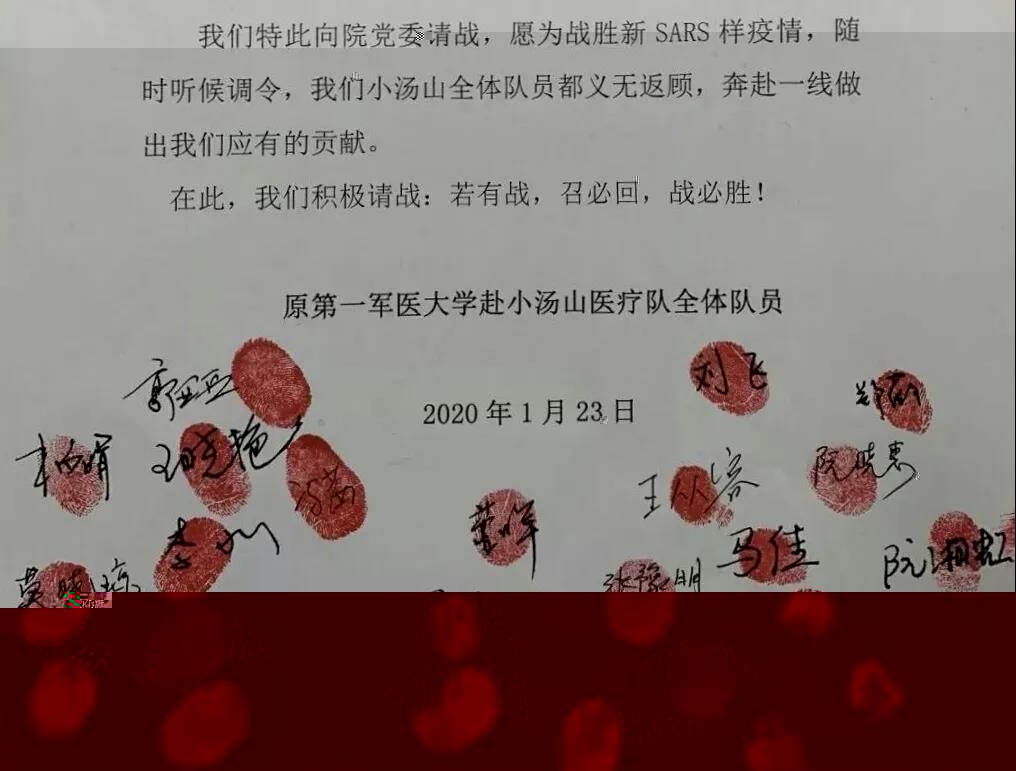 我们特此向院党委请战，愿为战胜新 SARS 样疫情，随
时听候调令，我们小汤山全体队员都义无返顾，奔赴一线做
出我们应有的贡献。
在此，我们积极请战：若有战，召必回，战必胜！
原第一军医大学赴小汤山医疗队全体队员
2020 年 1 月 23 日
刘飞
郭亚亚
王晓艳
王从容
阮晓惠
李小川
董晖
马佳
阮湘虹
张豫明